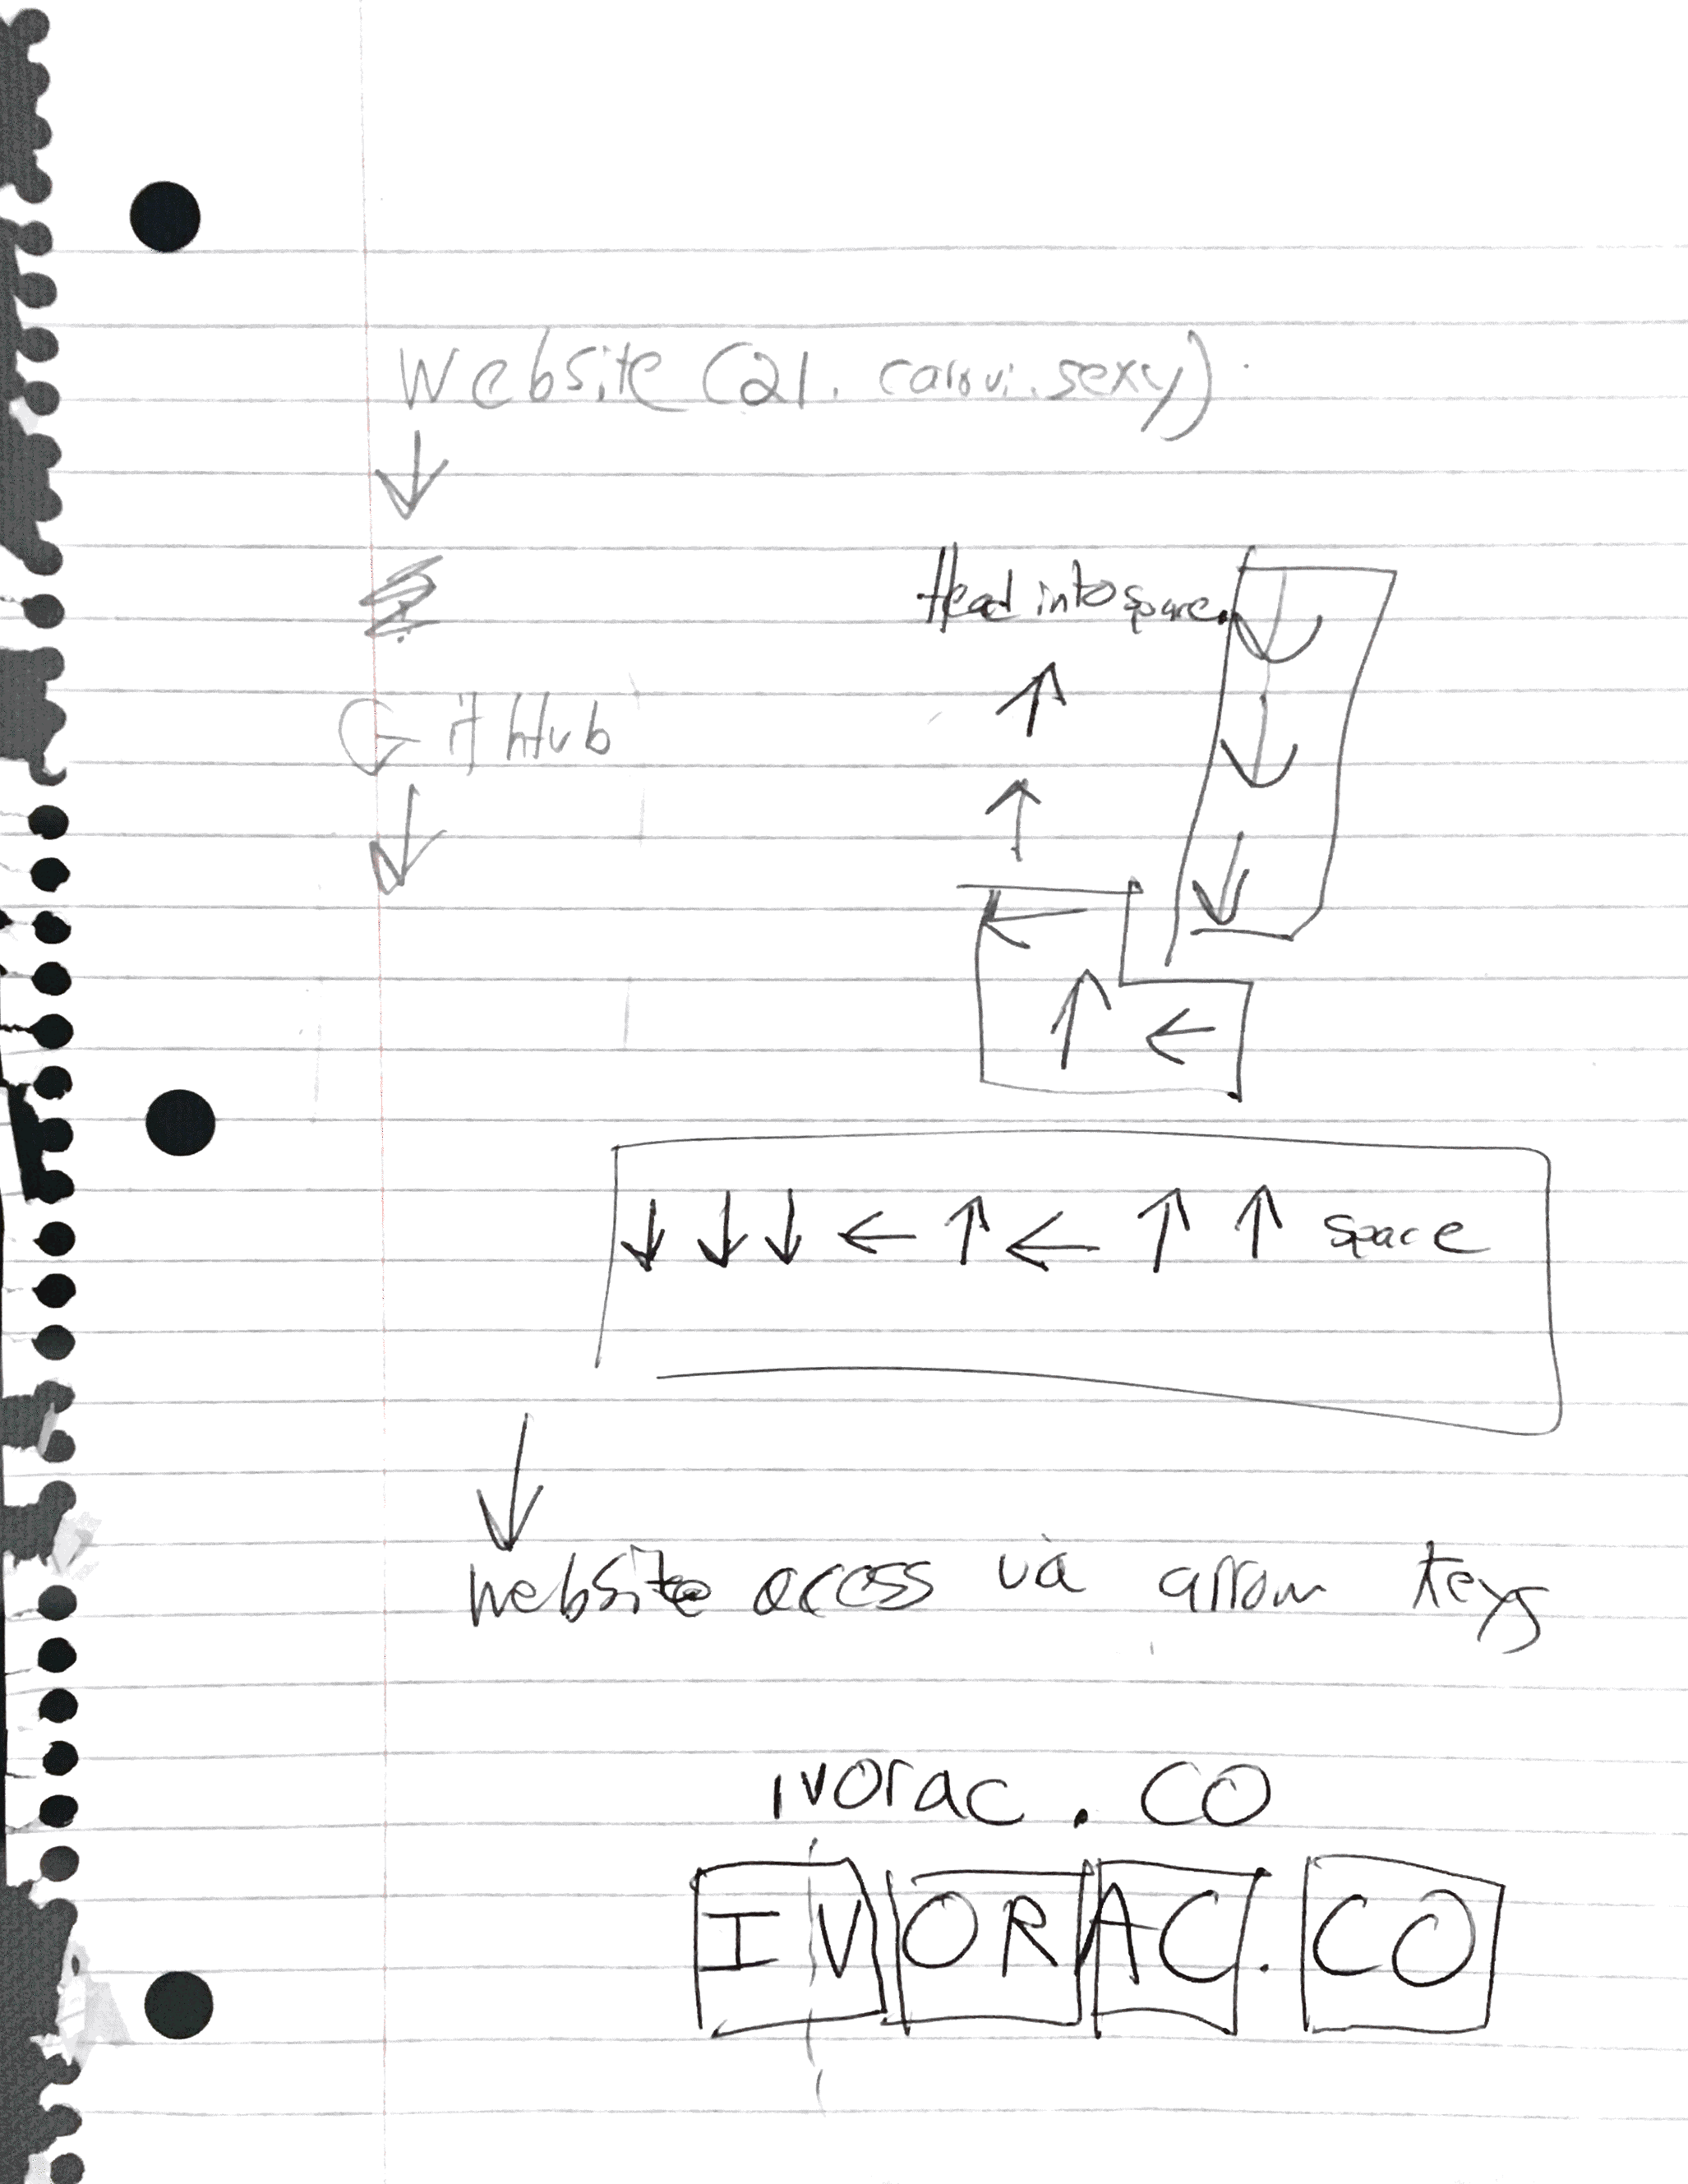 Website (21. carovi.sexy)
↓
GitHub
↓
Head into space.
↓ ↓ ↓ ← ↑ ← ↑ ↑ space
↓
website access via arrow keys
ivorac . co
IV ORAC . CO